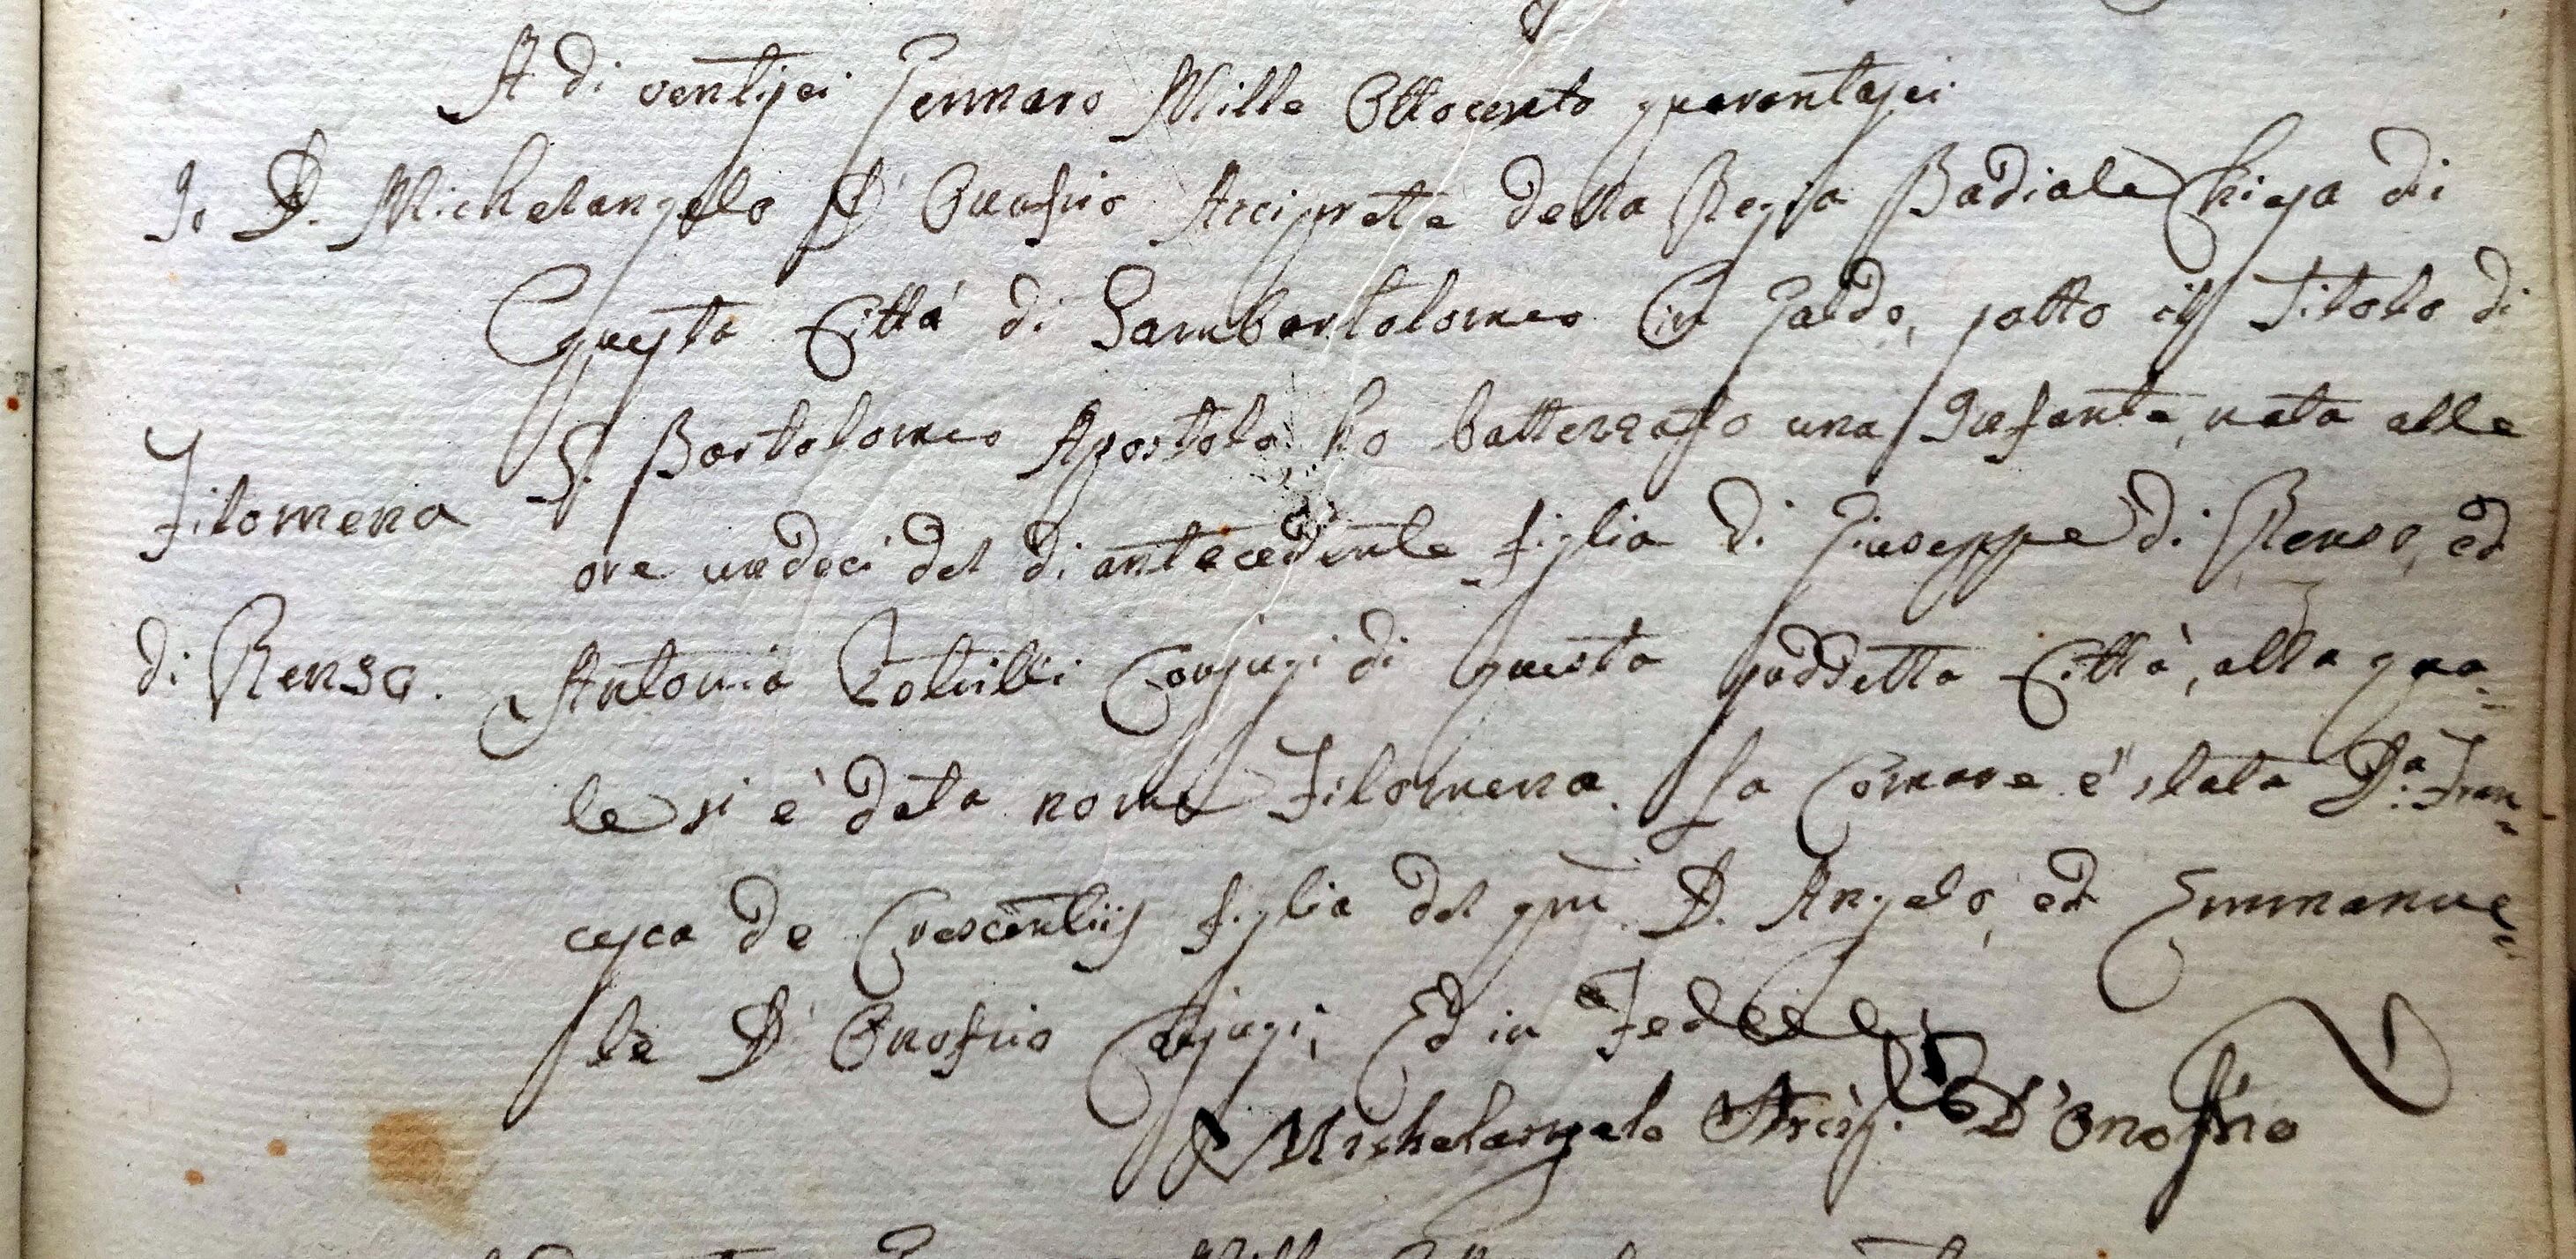 A di ventisei Gennaro Mille Ottocento quarantasei
Io D. Michelangelo D'Onofrio Arciprete della Regia Badiale Chiesa di
questa Città di Sambartolomeo in Galdo, sotto il Titolo di
S. Bartolomeo Apostolo ho battezzato una Infante, nata alle
Filomena
ore undeci del di antecedente figlia di Giuseppe di Renso, ed
di Renso.
Antonia conjugi di questa suddetta Città, alla qua=
le si è data nome Filomena. La Comare è stata D.a Fran=
cesca de Crescentiis figlia del qm D. Angelo, ed Emmanue=
le D'Onofrio Conjugi; Ed in Fede
Michelangelo Arcip. D'Onofrio